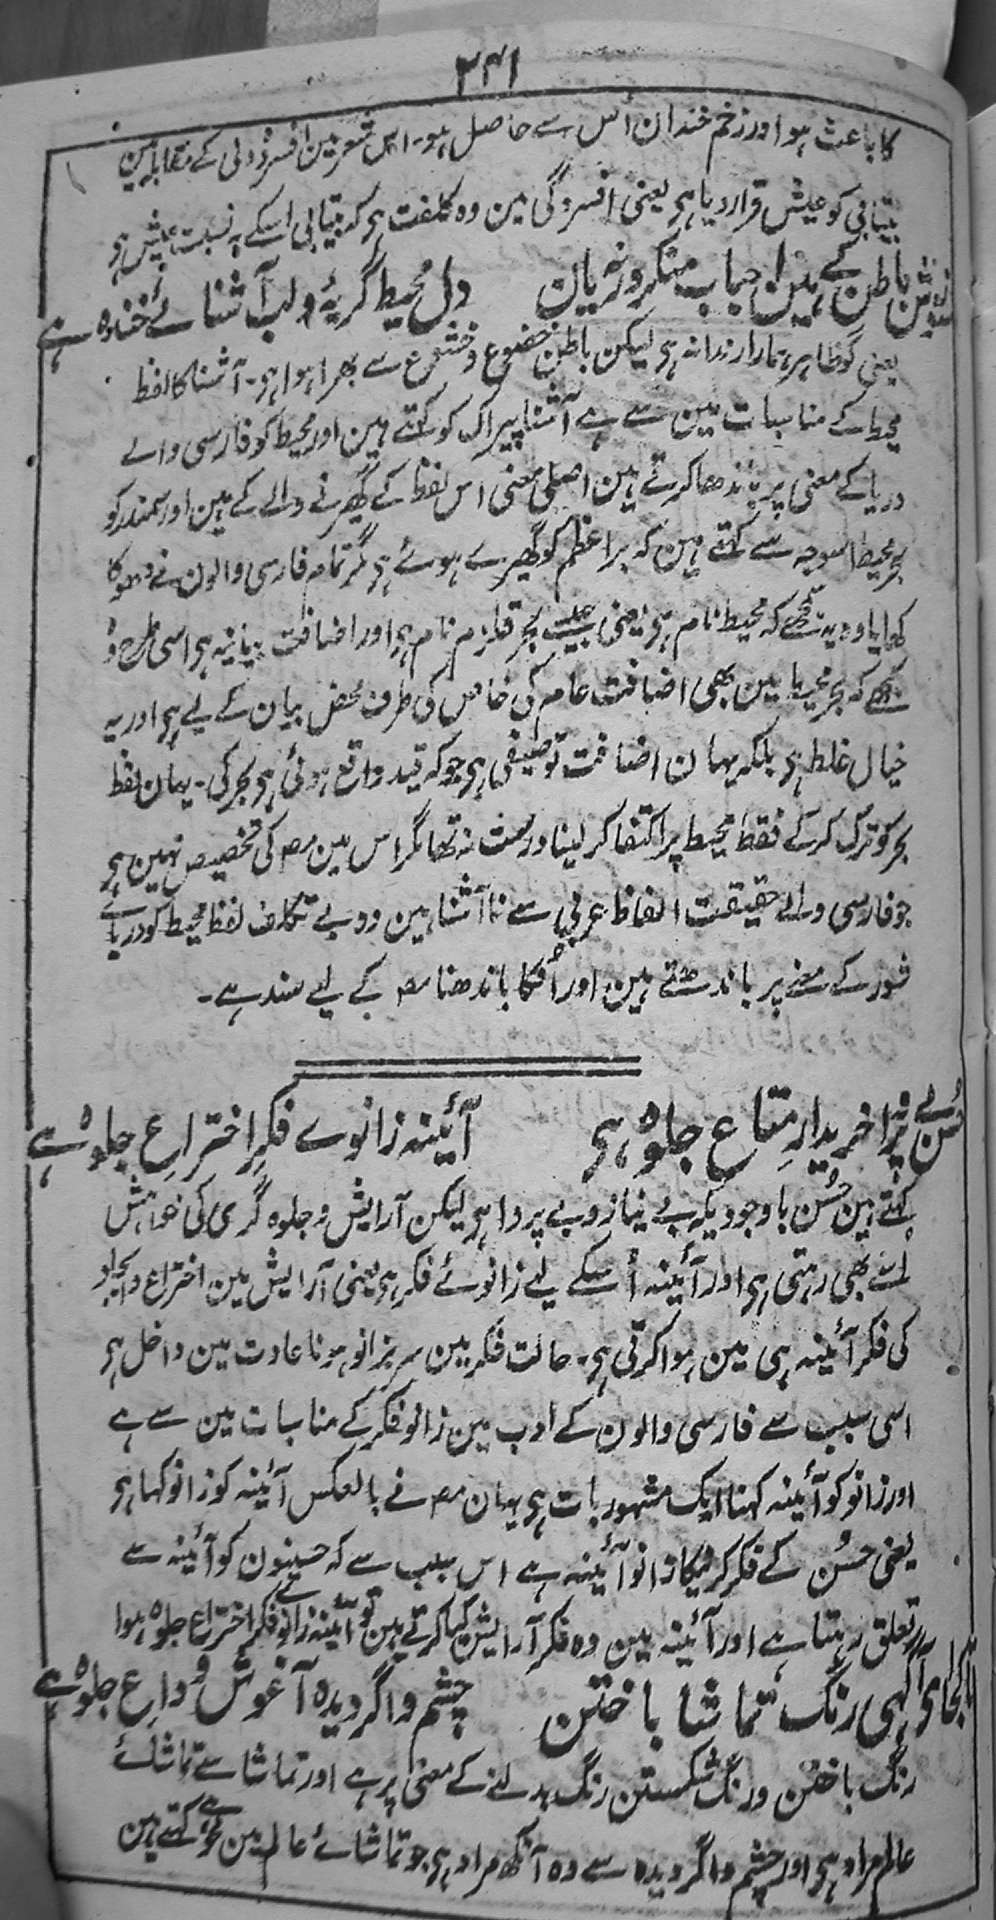 ۲۴۱
کا باعث ہو اور زخم خندان اُس سے حاصل ہو۔ اس شعر مین افسردہ دلی کے مقابلہ مین
بیتابی کو عیش قرار دیا ہی یعنی افسردگی مین وہ کلفت ہی کہ بیتابی اسکے بہ نسبت عیش ہی
شورش باطن کے ہین احباب منکر ورنہ یان دل محیط گریہ و لب آشنائے خندہ ہے
یعنی گو ظاہر ہمارا رندانہ ہی لیکن باطن خضوع و خشوع سے بھرا ہوا ہی۔ آشنا کا لفظ
محیط کے مناسبات مین سے ہے آشنا پیراک کو کہتے ہین اور محیط کو فارسی والے
دریا کے معنی پر باندھا کرتے ہین اصلی معنی اس لفظ کے گھیرنے والے کے ہین اور سمندر کو
بحر محیط اسوجہ سے کہتے ہین کہ بر اعظم کو گھیرے ہوئے ہی مگر تمام فارسی والون نے دھوکا
کھایا اور یہ سمجھے کہ محیط نام ہی یعنی جیسے بحر قلزم نام ہی اور اضافت بیانیہ ہی اسی طرح وہ
سمجھے کہ بحر محیط مین بھی اضافت عام کی خاص کی طرف محض بیان کے لیے ہی اور یہ
خیال غلط ہی بلکہ یہان اضافت توصیفی ہی جو کہ قید واقع ہوئی ہی بحر کی۔ یہان لفظ
بحر کو ترک کرکے فقط محیط پر اکتفا کر لینا درست نہ تھا مگر اس مین مص کی تخصیص نہین ہی
جو فارسی والے حقیقت الفاظ عربی سے نا آشنا ہین وہ بے تکلف لفظ محیط کو دریاے
شور کے معنے پر باندھتے ہین اور اُنکا باندھنا مص کے لیے سند ہے۔
حُسن بے پروا خریدارِ متاع جلوہ ہی آئینہ زانوے فکرِ اختراعِ جلوہ ہے
کہتے ہین حُسن باوجودیکہ بے نیاز و بے پروا ہی لیکن آرایش و جلوہ گری کی خواہش
اُسے بھی رہتی ہی اور آئینہ اُسکے لیے زانوئے فکر ہی یعنی آرایش مین اختراع و ایجاد
کی فکر آئینہ ہی مین ہوا کرتی ہی۔ حالت فکر مین سر بزانو ہونا عادت مین داخل ہی
اسی سبب سے فارسی والون کے ادب مین زانو فکر کے مناسبات مین سے ہے
اور زانو کو آئینہ کہنا ایک مشہور بات ہی یہان مص نے بالعکس آئینہ کو زانو کہا ہی
یعنی حسُن کے فکر کرنیکا زانو آئینہ ہے اس سبب سے کہ حسینون کو آئینہ سے
تعلق رہتا ہے اور آئینہ مین وہ فکر آرایش کیا کرتے ہین تو آئینہ زانوے فکر اختراع جلوہ ہوا
تا کجا ای آگہی رنگ تماشا باختن چشم وا گردیدہ آغوش وداعِ جلوہ ہے
رنگ باختن و رنگ شکستن رنگ بدلنے کے معنی پر ہے اور تماشا سے تماشائے
عالم مراد ہی اور چشم وا گردیدہ سے وہ آنکھ مراد ہی جو تماشائے عالم مین محو ہے کہتے ہین